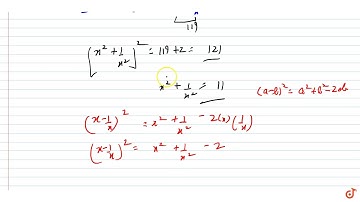 119
[x² + 1/x²]² = 119 + 2 = 121
x² + 1/x² = 11
(a-b)² = a² + b² - 2ab
(x - 1/x)² = x² + 1/x² - 2(x)(1/x)
(x - 1/x)² = x² + 1/x² - 2